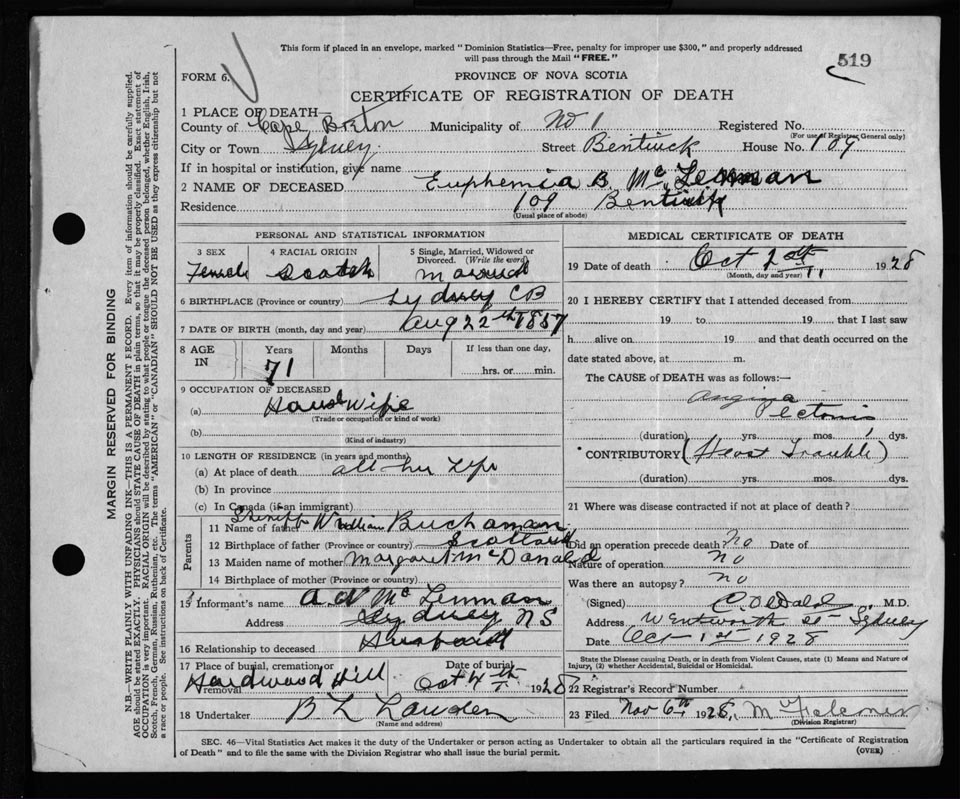 This form if placed in an envelope, marked "Dominion Statistics—Free, penalty for improper use $300," and properly addressed
will pass through the Mail "FREE."
519
FORM 6.
PROVINCE OF NOVA SCOTIA
CERTIFICATE OF REGISTRATION OF DEATH
1 PLACE OF DEATH—
County of Cape Breton Municipality of No 1 Registered No.
(For use of Registrar General only)
City or Town Sydney Street Bentinck House No. 109
If in hospital or institution, give name
2 NAME OF DECEASED Euphemia B. Mc Lennan
Residence 109 Bentinck
(Usual place of abode)
PERSONAL AND STATISTICAL INFORMATION
3 SEX 4 RACIAL ORIGIN 5 Single, Married, Widowed or Divorced. (Write the word)
Female Scotch Married
6 BIRTHPLACE (Province or country) Sydney CB
7 DATE OF BIRTH (month, day and year) Aug 22th 1857
8 AGE IN Years Months Days If less than one day,
71 hrs. or min.
9 OCCUPATION OF DECEASED
(a) House Wife
(Trade or occupation or kind of work)
(b)
(Kind of industry)
10 LENGTH OF RESIDENCE (in years and months)
(a) At place of death all her Life
(b) In province
(c) In Canada (if an immigrant)
Parents
11 Name of father Sheriff William Buchanan
12 Birthplace of father (Province or country) Scotland
13 Maiden name of mother Margaret McDonald
14 Birthplace of mother (Province or country)
15 Informant's name A. N Mc Lennan
Address Sydney N S
16 Relationship to deceased Husband
17 Place of burial, cremation or removal Date of burial
Hardwood Hill Oct 4th 1928
18 Undertaker B L
(Name and address)
MEDICAL CERTIFICATE OF DEATH
19 Date of death Oct 1928
(Month, day and year)
20 I HEREBY CERTIFY that I attended deceased from
19 to 19 that I last saw
h alive on 19 and that death occurred on the
date stated above, at m.
The CAUSE of DEATH was as follows:—
Angina
Pectoris
(duration) yrs. mos. 1 dys.
CONTRIBUTORY (Heart Trouble)
(duration) yrs. mos. dys.
21 Where was disease contracted if not at place of death?
Did an operation precede death? No Date of
Nature of operation no
Was there an autopsy? no
(Signed) M.D.
Address Wentworth St Sydney
Date Oct 1st 1928
State the Disease causing Death, or in death from Violent Causes, state (1) Means and Nature of
Injury, (2) whether Accidental, Suicidal or Homicidal.
22 Registrar's Record Number
23 Filed Nov 6th 1928,
(Division Registrar)
SEC. 46—Vital Statistics Act makes it the duty of the Undertaker or person acting as Undertaker to obtain all the particulars required in the "Certificate of Registration
of Death" and to file the same with the Division Registrar who shall issue the burial permit.
(OVER)
MARGIN RESERVED FOR BINDING
N.B.—WRITE PLAINLY WITH UNFADING INK—THIS IS A PERMANENT RECORD. Every item of information should be carefully supplied.
AGE should be stated EXACTLY. PHYSICIANS should STATE CAUSE OF DEATH in plain terms, so that it may be properly classified. Exact statement of
OCCUPATION is very important. RACIAL ORIGIN will be described by stating to what people or tongue the deceased person belonged, whether English, Irish,
Scotch, French, German, Russian, Ruthenian, etc. The terms "AMERICAN" or "CANADIAN" SHOULD NOT BE USED as they express citizenship but not
a race or people. See instructions on back of Certificate.